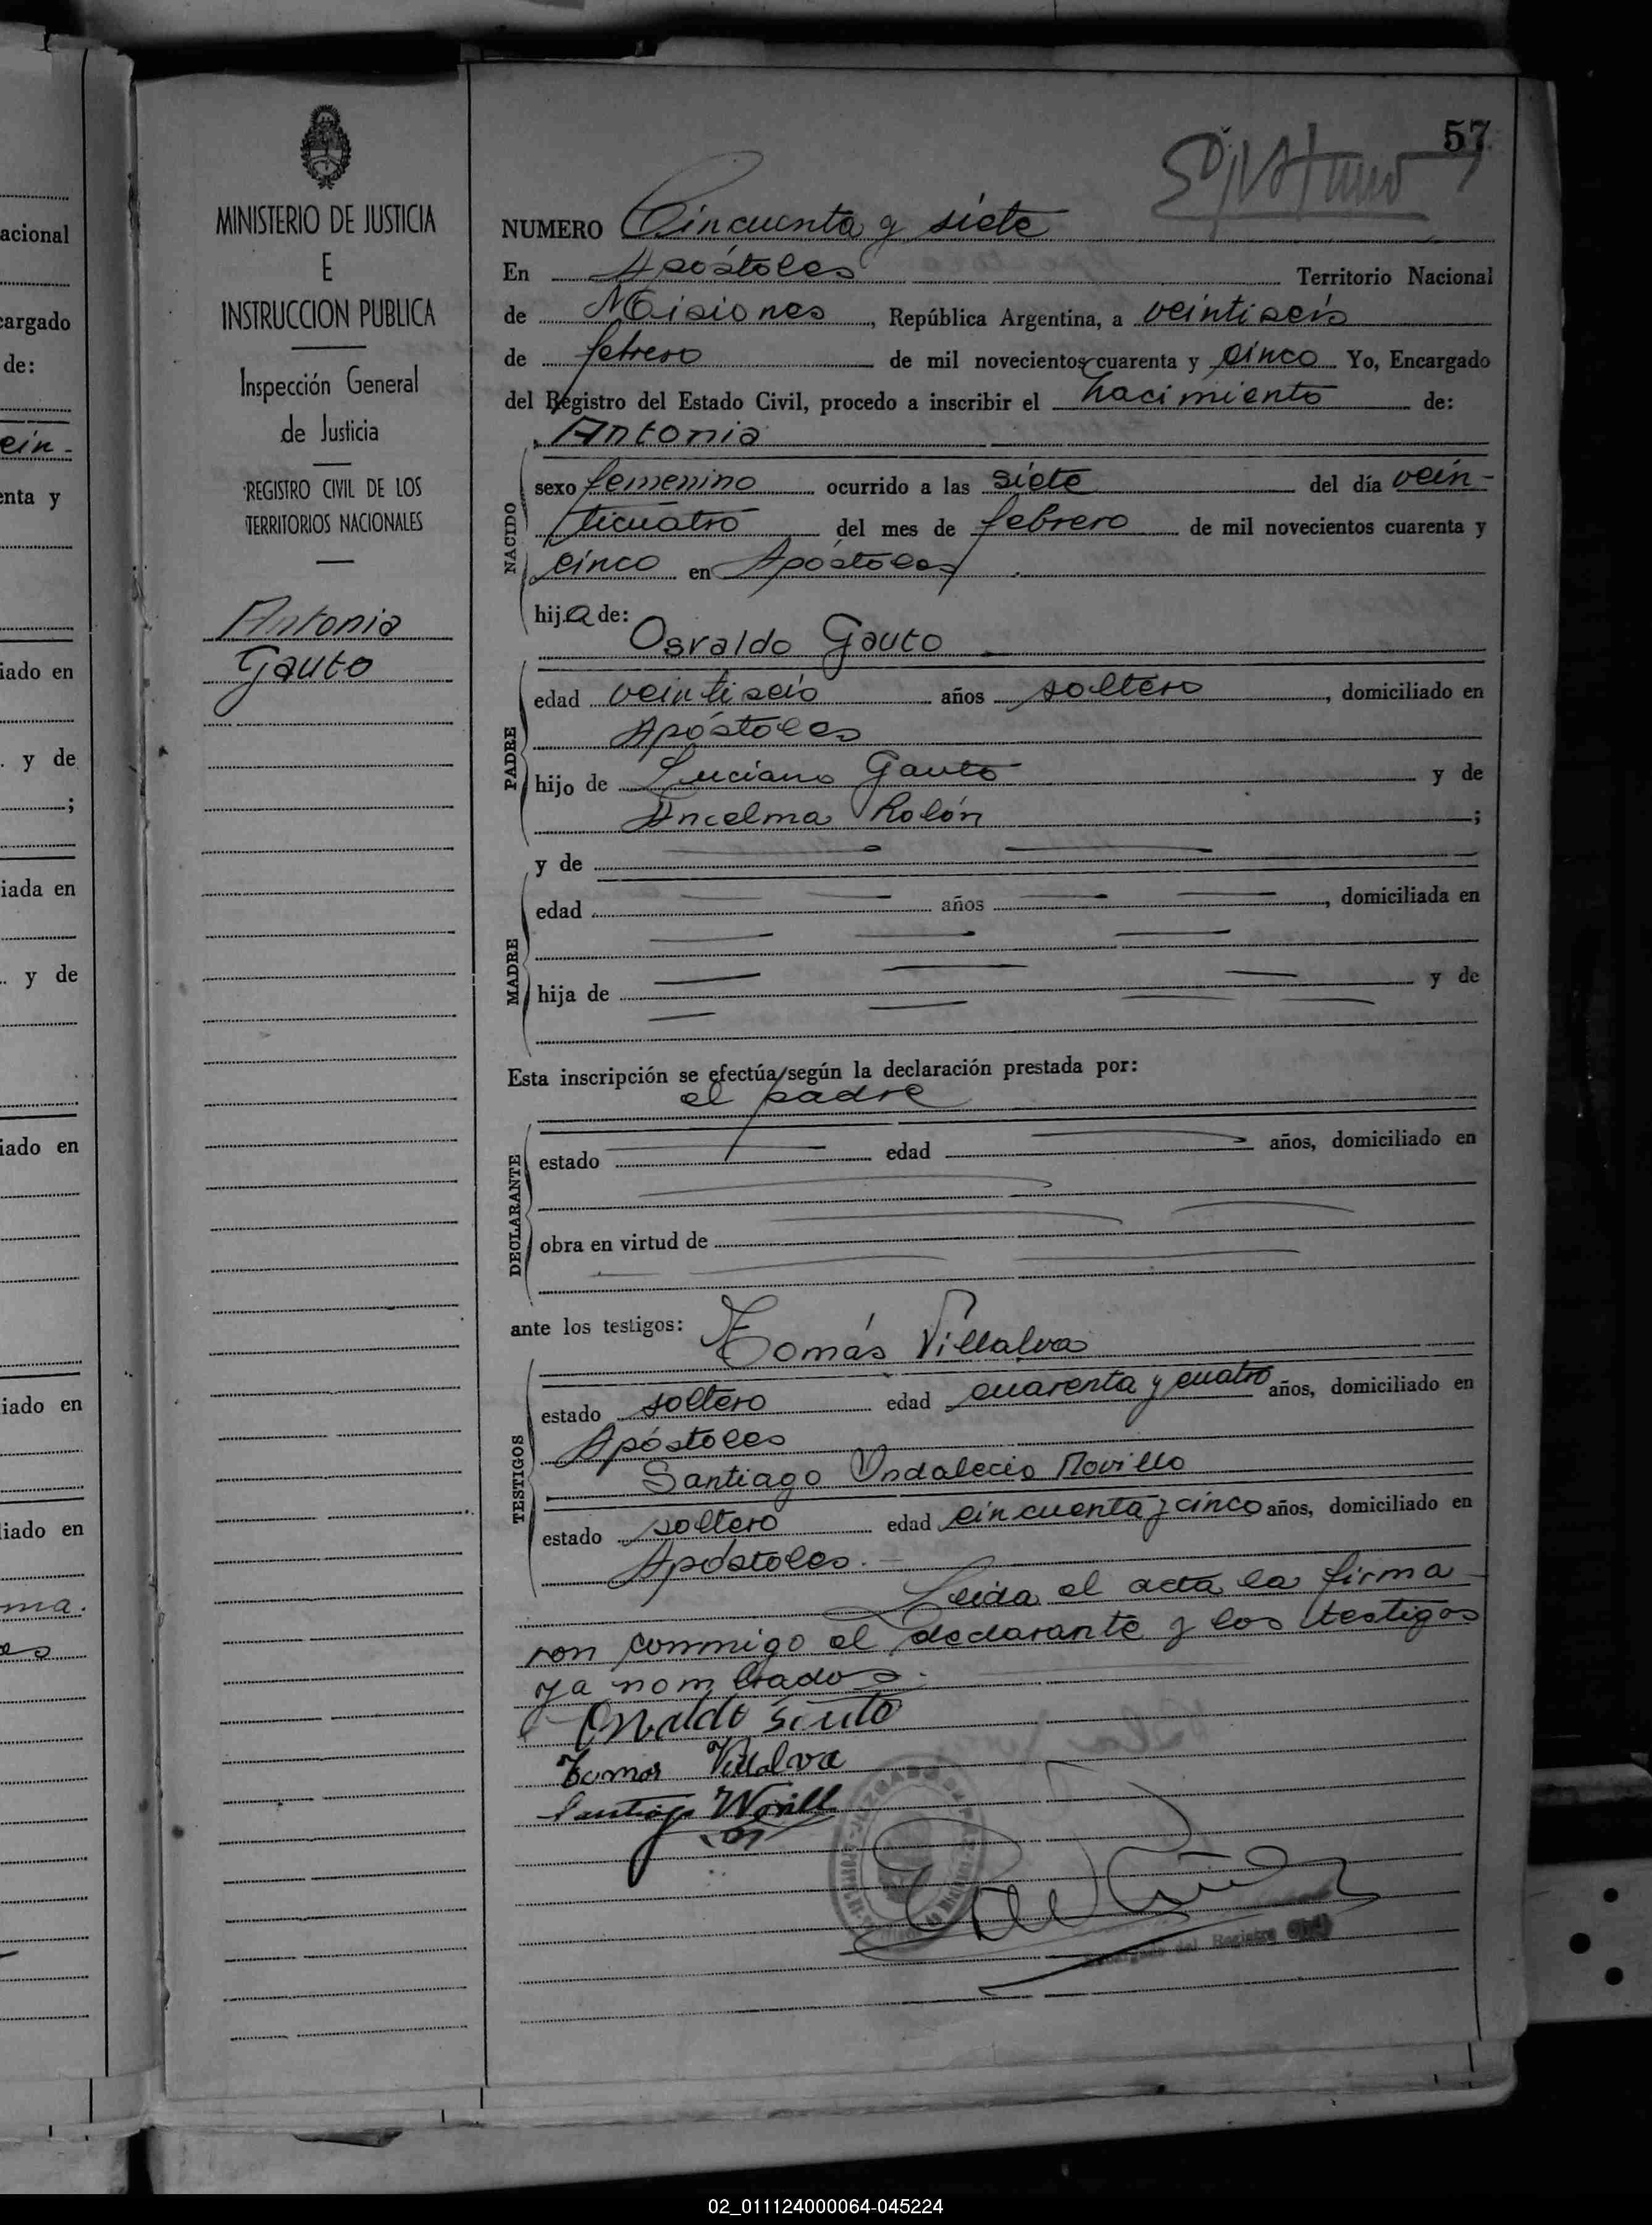 acional
cargado
de:
ein-
enta y
iado en
. y de
;
iada en
. y de
iado en
iado en
liado en
ma.
es
MINISTERIO DE JUSTICIA
E
INSTRUCCION PUBLICA
Inspección General
de Justicia
REGISTRO CIVIL DE LOS
TERRITORIOS NACIONALES
Antonia
Gauto
57
NUMERO Cincuenta y siete
En Apóstoles Territorio Nacional
de Misiones, República Argentina, a veintiseis
de febrero de mil novecientos cuarenta y cinco Yo, Encargado
del Registro del Estado Civil, procedo a inscribir el nacimiento de:
Antonia
NACIDO
sexo femenino ocurrido a las siete del día vein-
ticuatro del mes de febrero de mil novecientos cuarenta y
cinco en Apóstoles
hija de:
Osvaldo Gauto
PADRE
edad veintiseis años soltero, domiciliado en
Apóstoles
hijo de Luciano Gauto y de
Ancelma Rolón ;
MADRE
y de
edad años , domiciliada en
hija de y de
Esta inscripción se efectúa según la declaración prestada por:
el padre
DECLARANTE
estado edad años, domiciliado en
obra en virtud de
ante los testigos: Tomás Villalva
TESTIGOS
estado soltero edad cuarenta y cuatro años, domiciliado en
Apóstoles
Santiago Indalecio Morillo
estado soltero edad cincuenta y cinco años, domiciliado en
Apóstoles.
Leida el acta la firma
ron conmigo el declarante y los testigos
ya nombrados.
Osvaldo Gauto
Tomas Villalva
Santiago Morillo
Encargado del Registro Civil
02_011124000064-045224